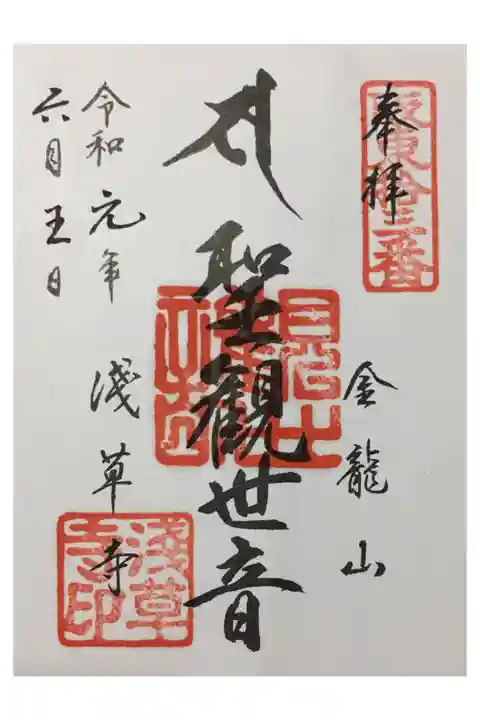 奉拝
坂東拾三番
金龍山
聖観世音
淺草寺
淺草寺印
令和元年
六月五日